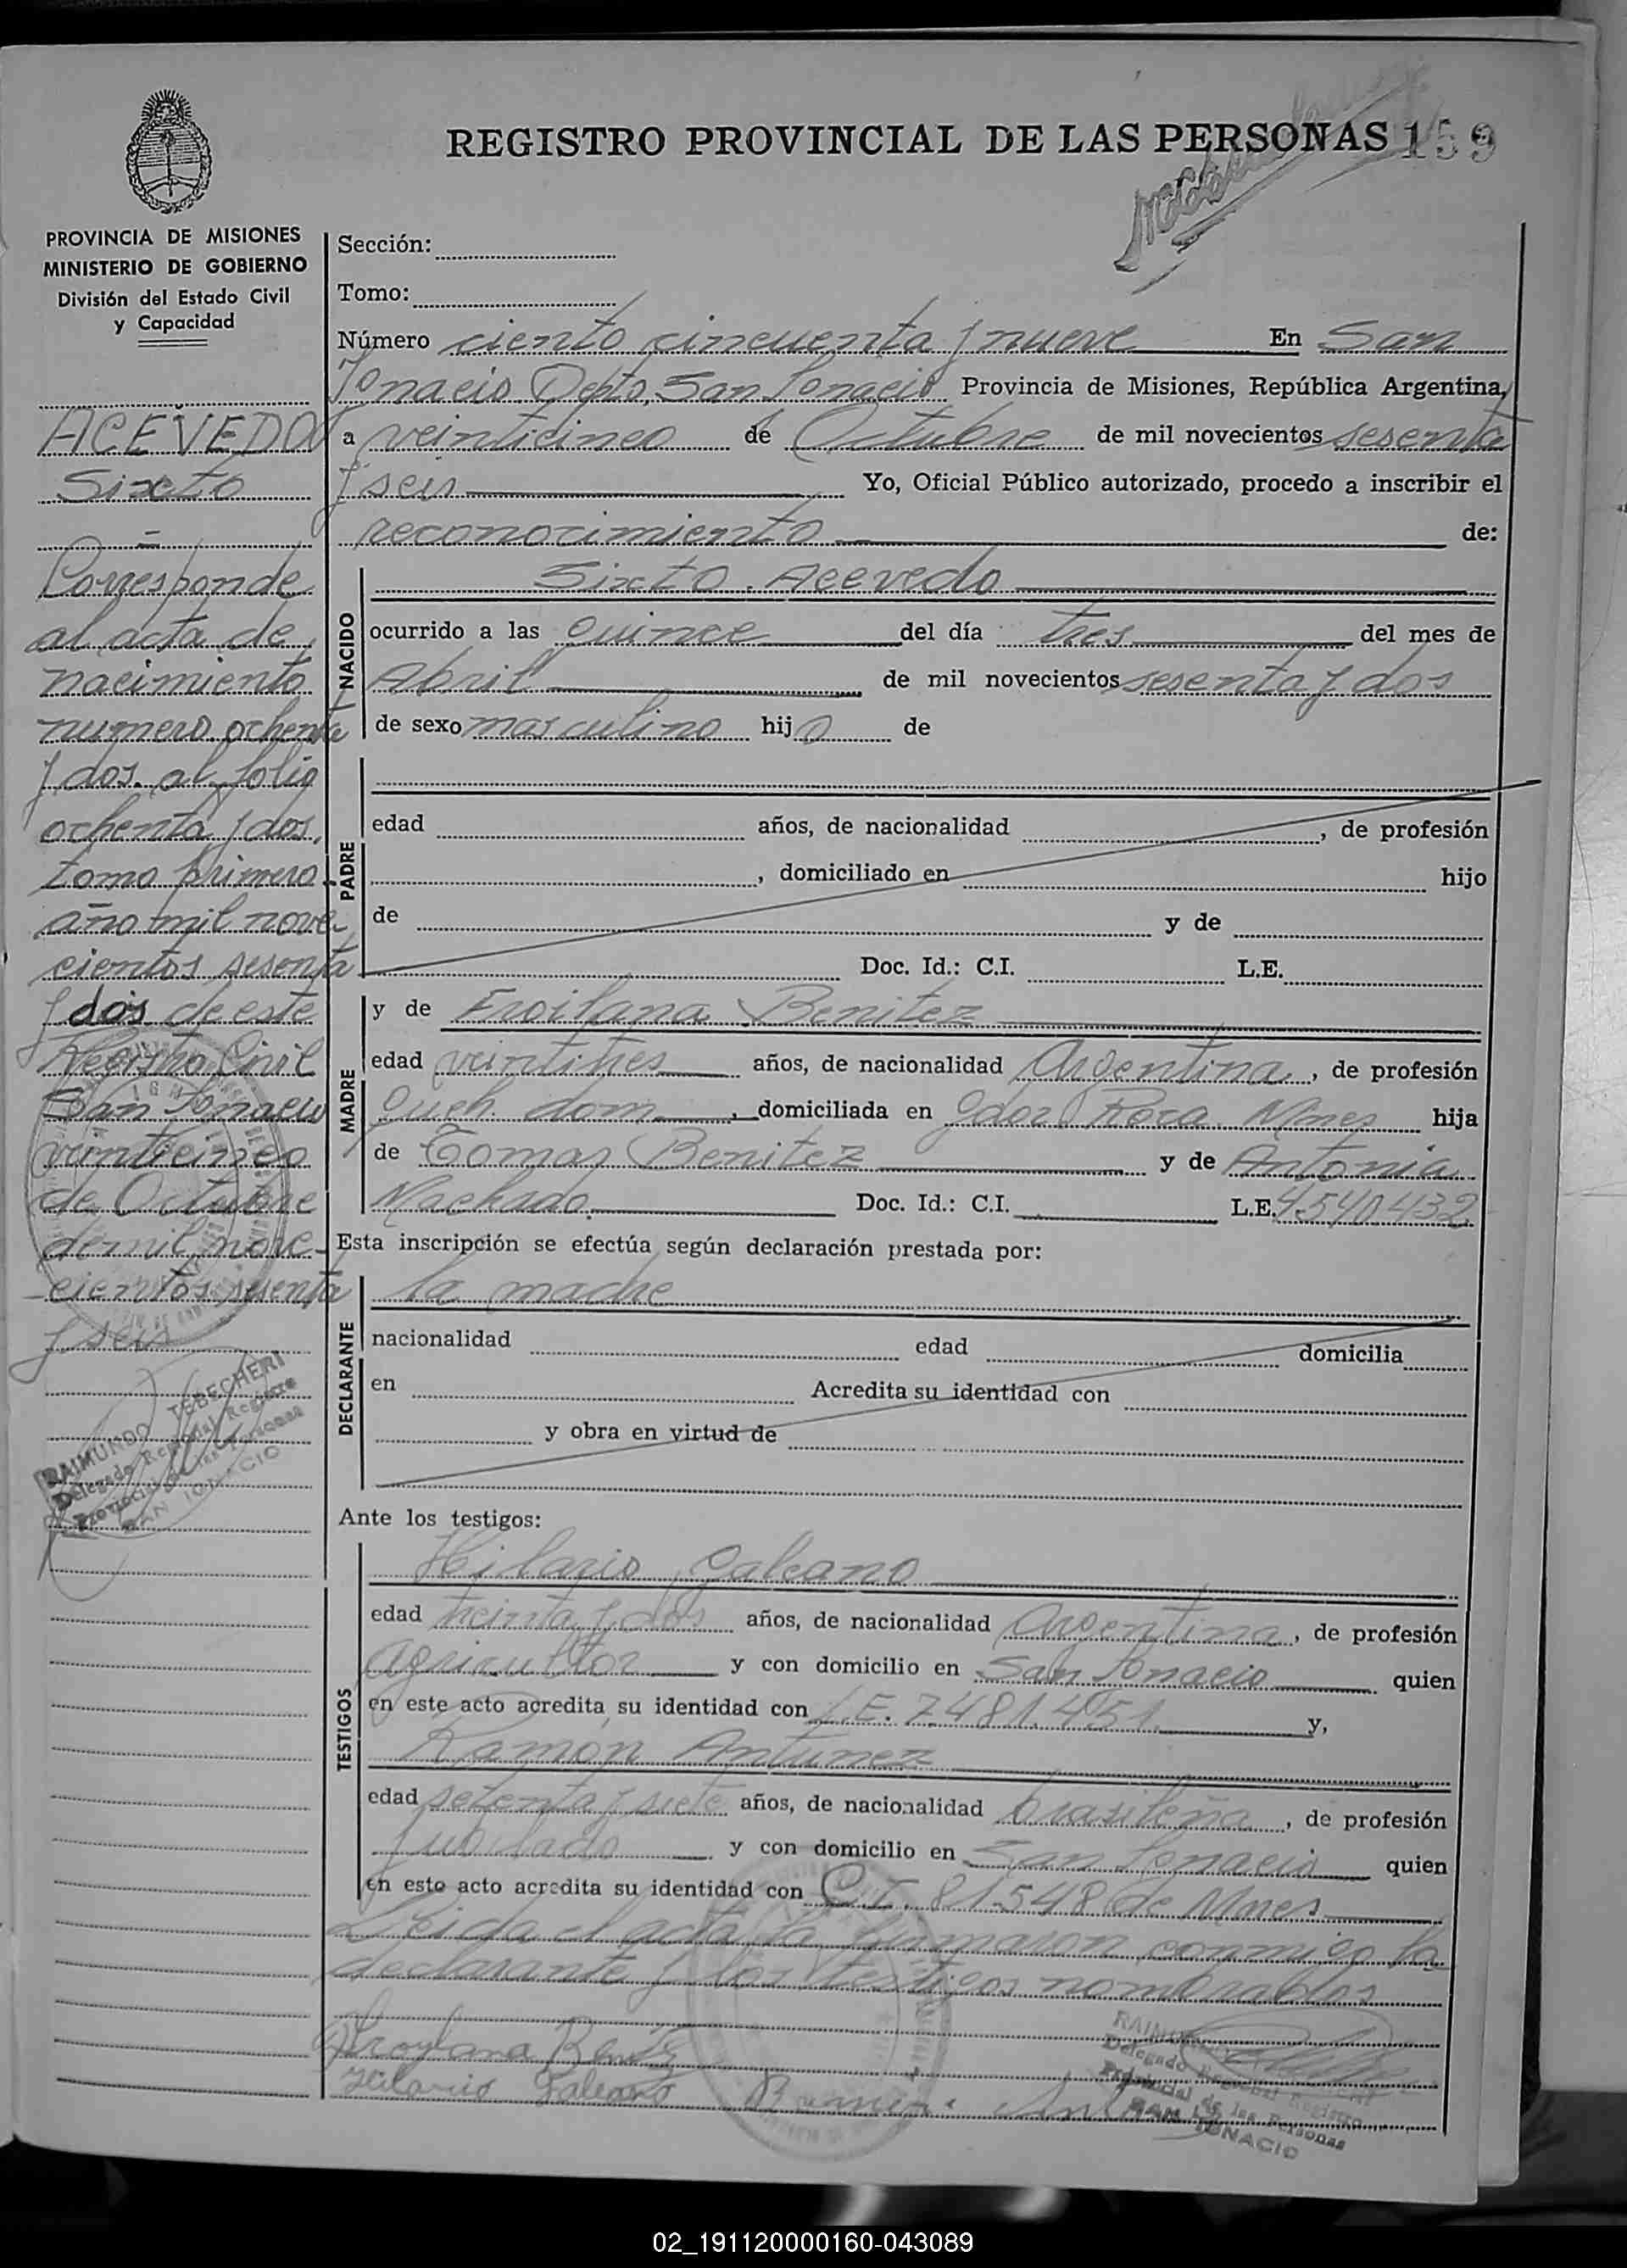 REGISTRO PROVINCIAL DE LAS PERSONAS 159
PROVINCIA DE MISIONES
MINISTERIO DE GOBIERNO
División del Estado Civil
y Capacidad
ACEVEDO
Sixto
Corresponde
al acta de
nacimiento
numero ochenta
y dos al folio
ochenta y dos,
tomo primero
año mil nove
cientos sesenta
y dos de este
Registro Civil
San Ignacio
veinticinco
de Octubre
de mil nove-
cientos sesenta
y seis
RAIMUNDO TEBECHERI
Delegado Regional Registro
Provincial de las Personas
SAN IGNACIO
Sección:
Tomo:
Número ciento cincuenta y nueve En San
Ignacio Depto. San Ignacio Provincia de Misiones, República Argentina,
a veinticinco de Octubre de mil novecientos sesenta
y seis Yo, Oficial Público autorizado, procedo a inscribir el
reconocimiento de:
NACIDO
Sixto Acevedo
ocurrido a las quince del día tres del mes de
Abril de mil novecientos sesenta y dos
de sexo masculino hijo de
PADRE
edad años, de nacionalidad , de profesión
, domiciliado en hijo
de y de
Doc. Id.: C.I. L.E.
MADRE
y de Froilana Benitez
edad veintitres años, de nacionalidad Argentina, de profesión
Queh. dom. , domiciliada en Gdor Roca Mnes hija
de Tomas Benitez y de Antonia
Machado. Doc. Id.: C.I. L.E. 4.540.432
Esta inscripción se efectúa según declaración prestada por:
DECLARANTE
la madre
nacionalidad edad domicilia
en Acredita su identidad con
y obra en virtud de
Ante los testigos:
TESTIGOS
Hilario Galeano
edad treinta y dos años, de nacionalidad Argentina, de profesión
agricultor y con domicilio en San Ignacio quien
en este acto acredita su identidad con L.E. 7.481.451. y,
Ramón Antunez
edad setenta y siete años, de nacionalidad brasileña, de profesión
jubilado y con domicilio en San Ignacio quien
en este acto acredita su identidad con C.I. 81.548 de Mnes
Leida el acta la firmaron conmigo la
declarante y los testigos nombrados
Froylana Benitez
Hilario Galeano
Delegado Regional Registro
Provincial de las Personas
SAN IGNACIO
02_191120000160-043089